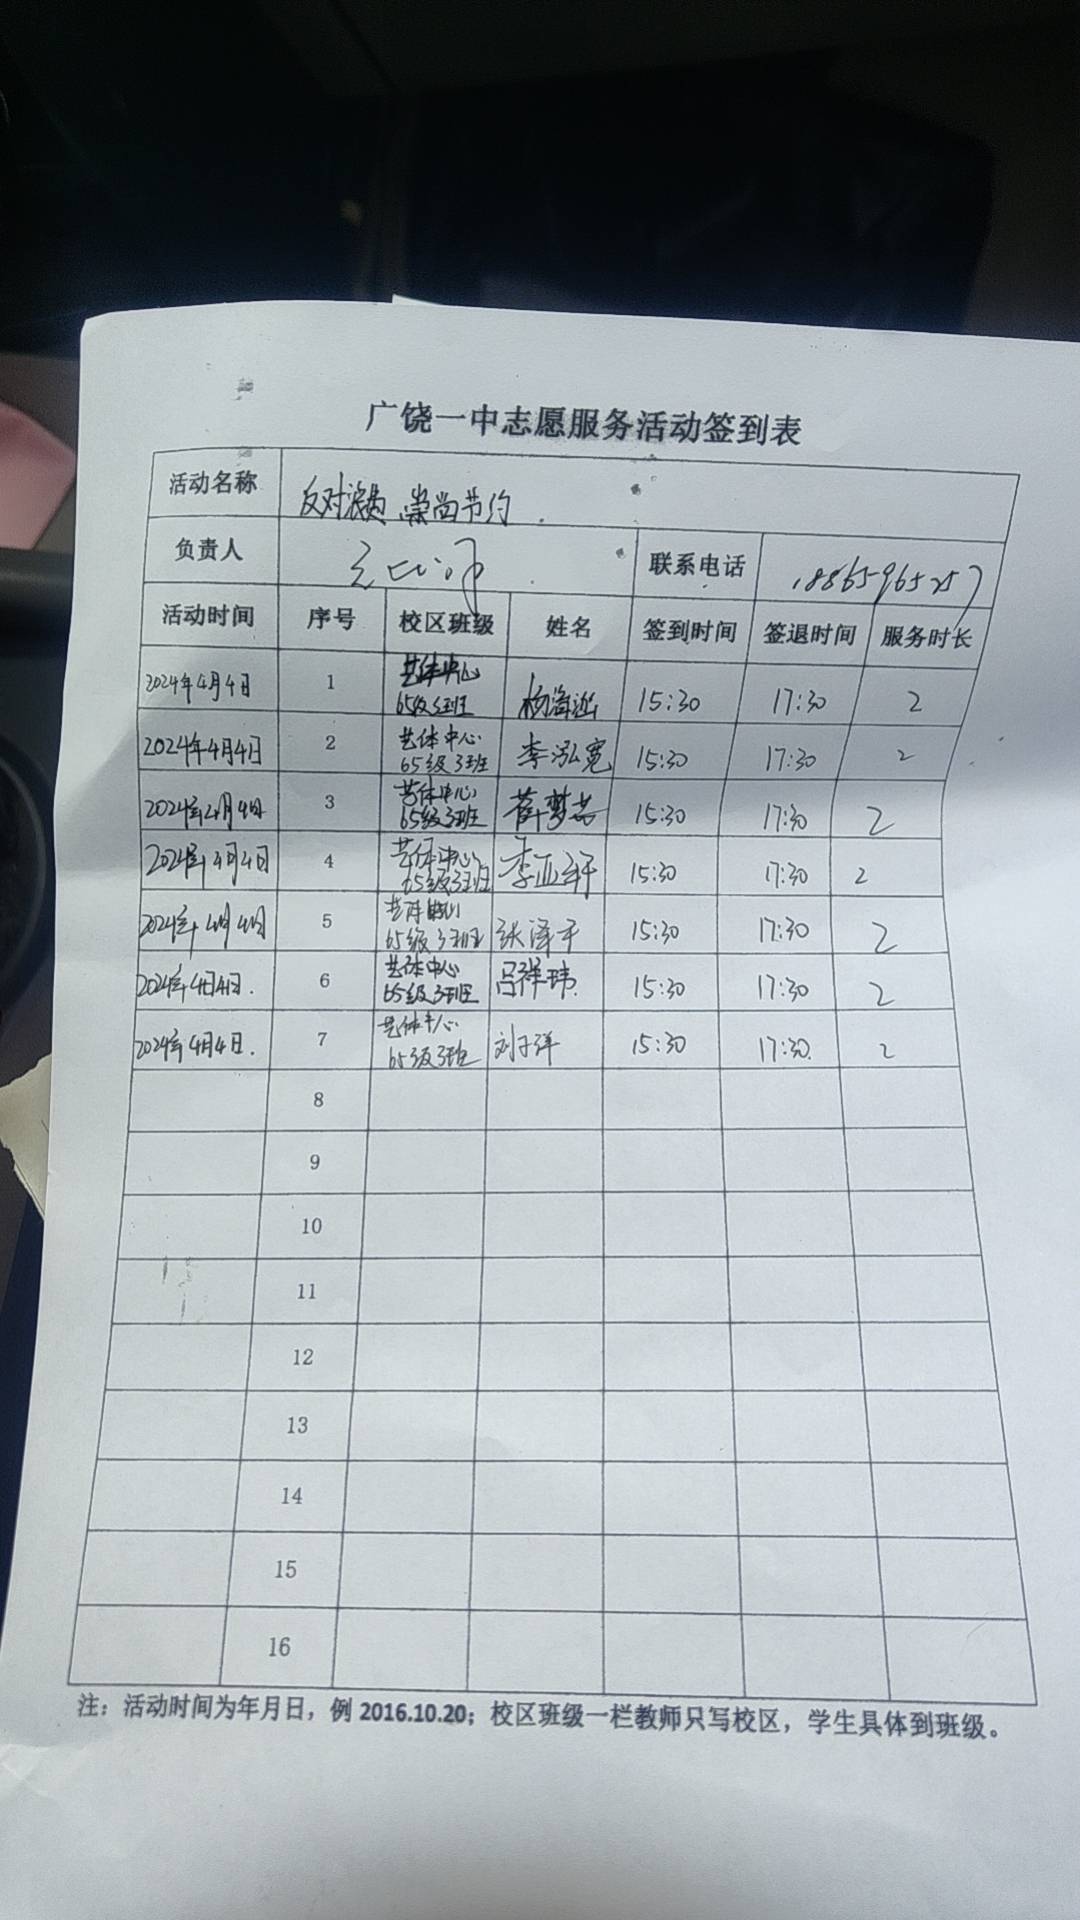 广饶一中志愿服务活动签到表
活动名称 反对浪费 崇尚节约
负责人 联系电话 18865965257
活动时间 序号 校区班级 姓名 签到时间 签退时间 服务时长
2024年4月4日 1 艺体中心 65级3班 杨海 15:30 17:30 2
2024年4月4日 2 艺体中心 65级3班 李泓宽 15:30 17:30 2
2024年4月4日 3 艺体中心 65级3班 薛梦茹 15:30 17:30 2
2024年4月4日 4 艺体中心 65级3班 李亚轩 15:30 17:30 2
2024年4月4日 5 艺体中心 65级3班 张泽千 15:30 17:30 2
2024年4月4日. 6 艺体中心 65级3班 吕祥玮 15:30 17:30 2
2024年4月4日. 7 艺体中心 65级3班 刘子洋 15:30 17:30. 2
8
9
10
11
12
13
14
15
16
注：活动时间为年月日，例 2016.10.20；校区班级一栏教师只写校区，学生具体到班级。